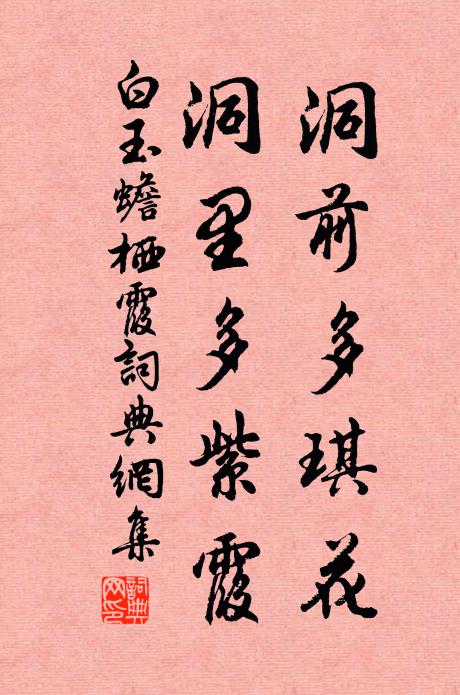 洞前多琪花
洞里多紫霞
白玉蟾栖霞詞典網集
詞典網印